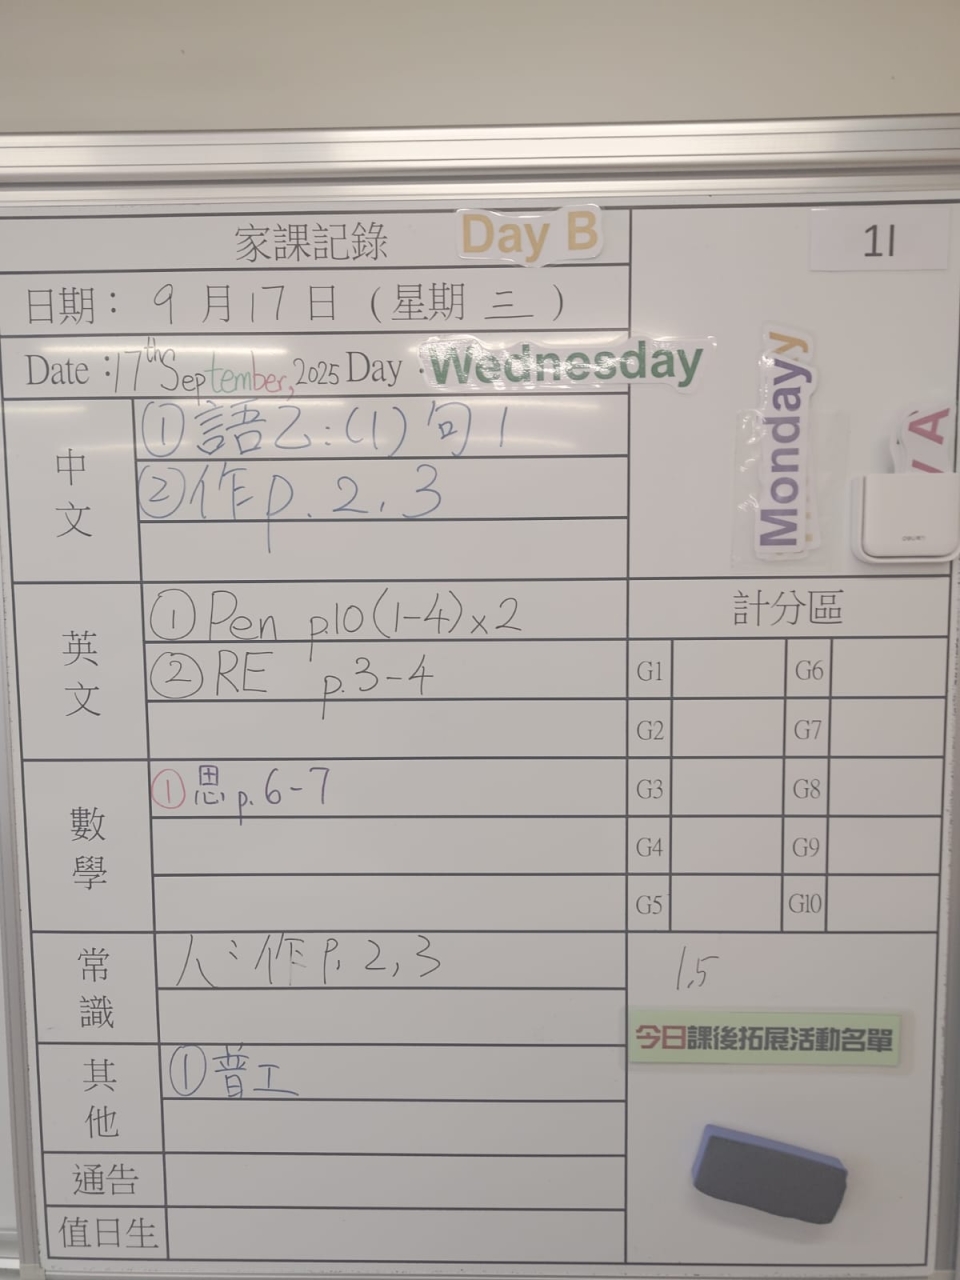 家課記錄 Day B
1I
日期：9月17日（星期三）
Date:17th September, 2025 Day Wednesday
Monday
y A
中文
①語乙:(1)句1
②作p.2,3
英文
①Pen p.10(1-4)x2
②RE p.3-4
計分區
G1 G6
G2 G7
G3 G8
G4 G9
G5 G10
數學
①思p.6-7
常識
人:作p,2,3
1,5
今日課後拓展活動名單
其他
①普工
通告
值日生